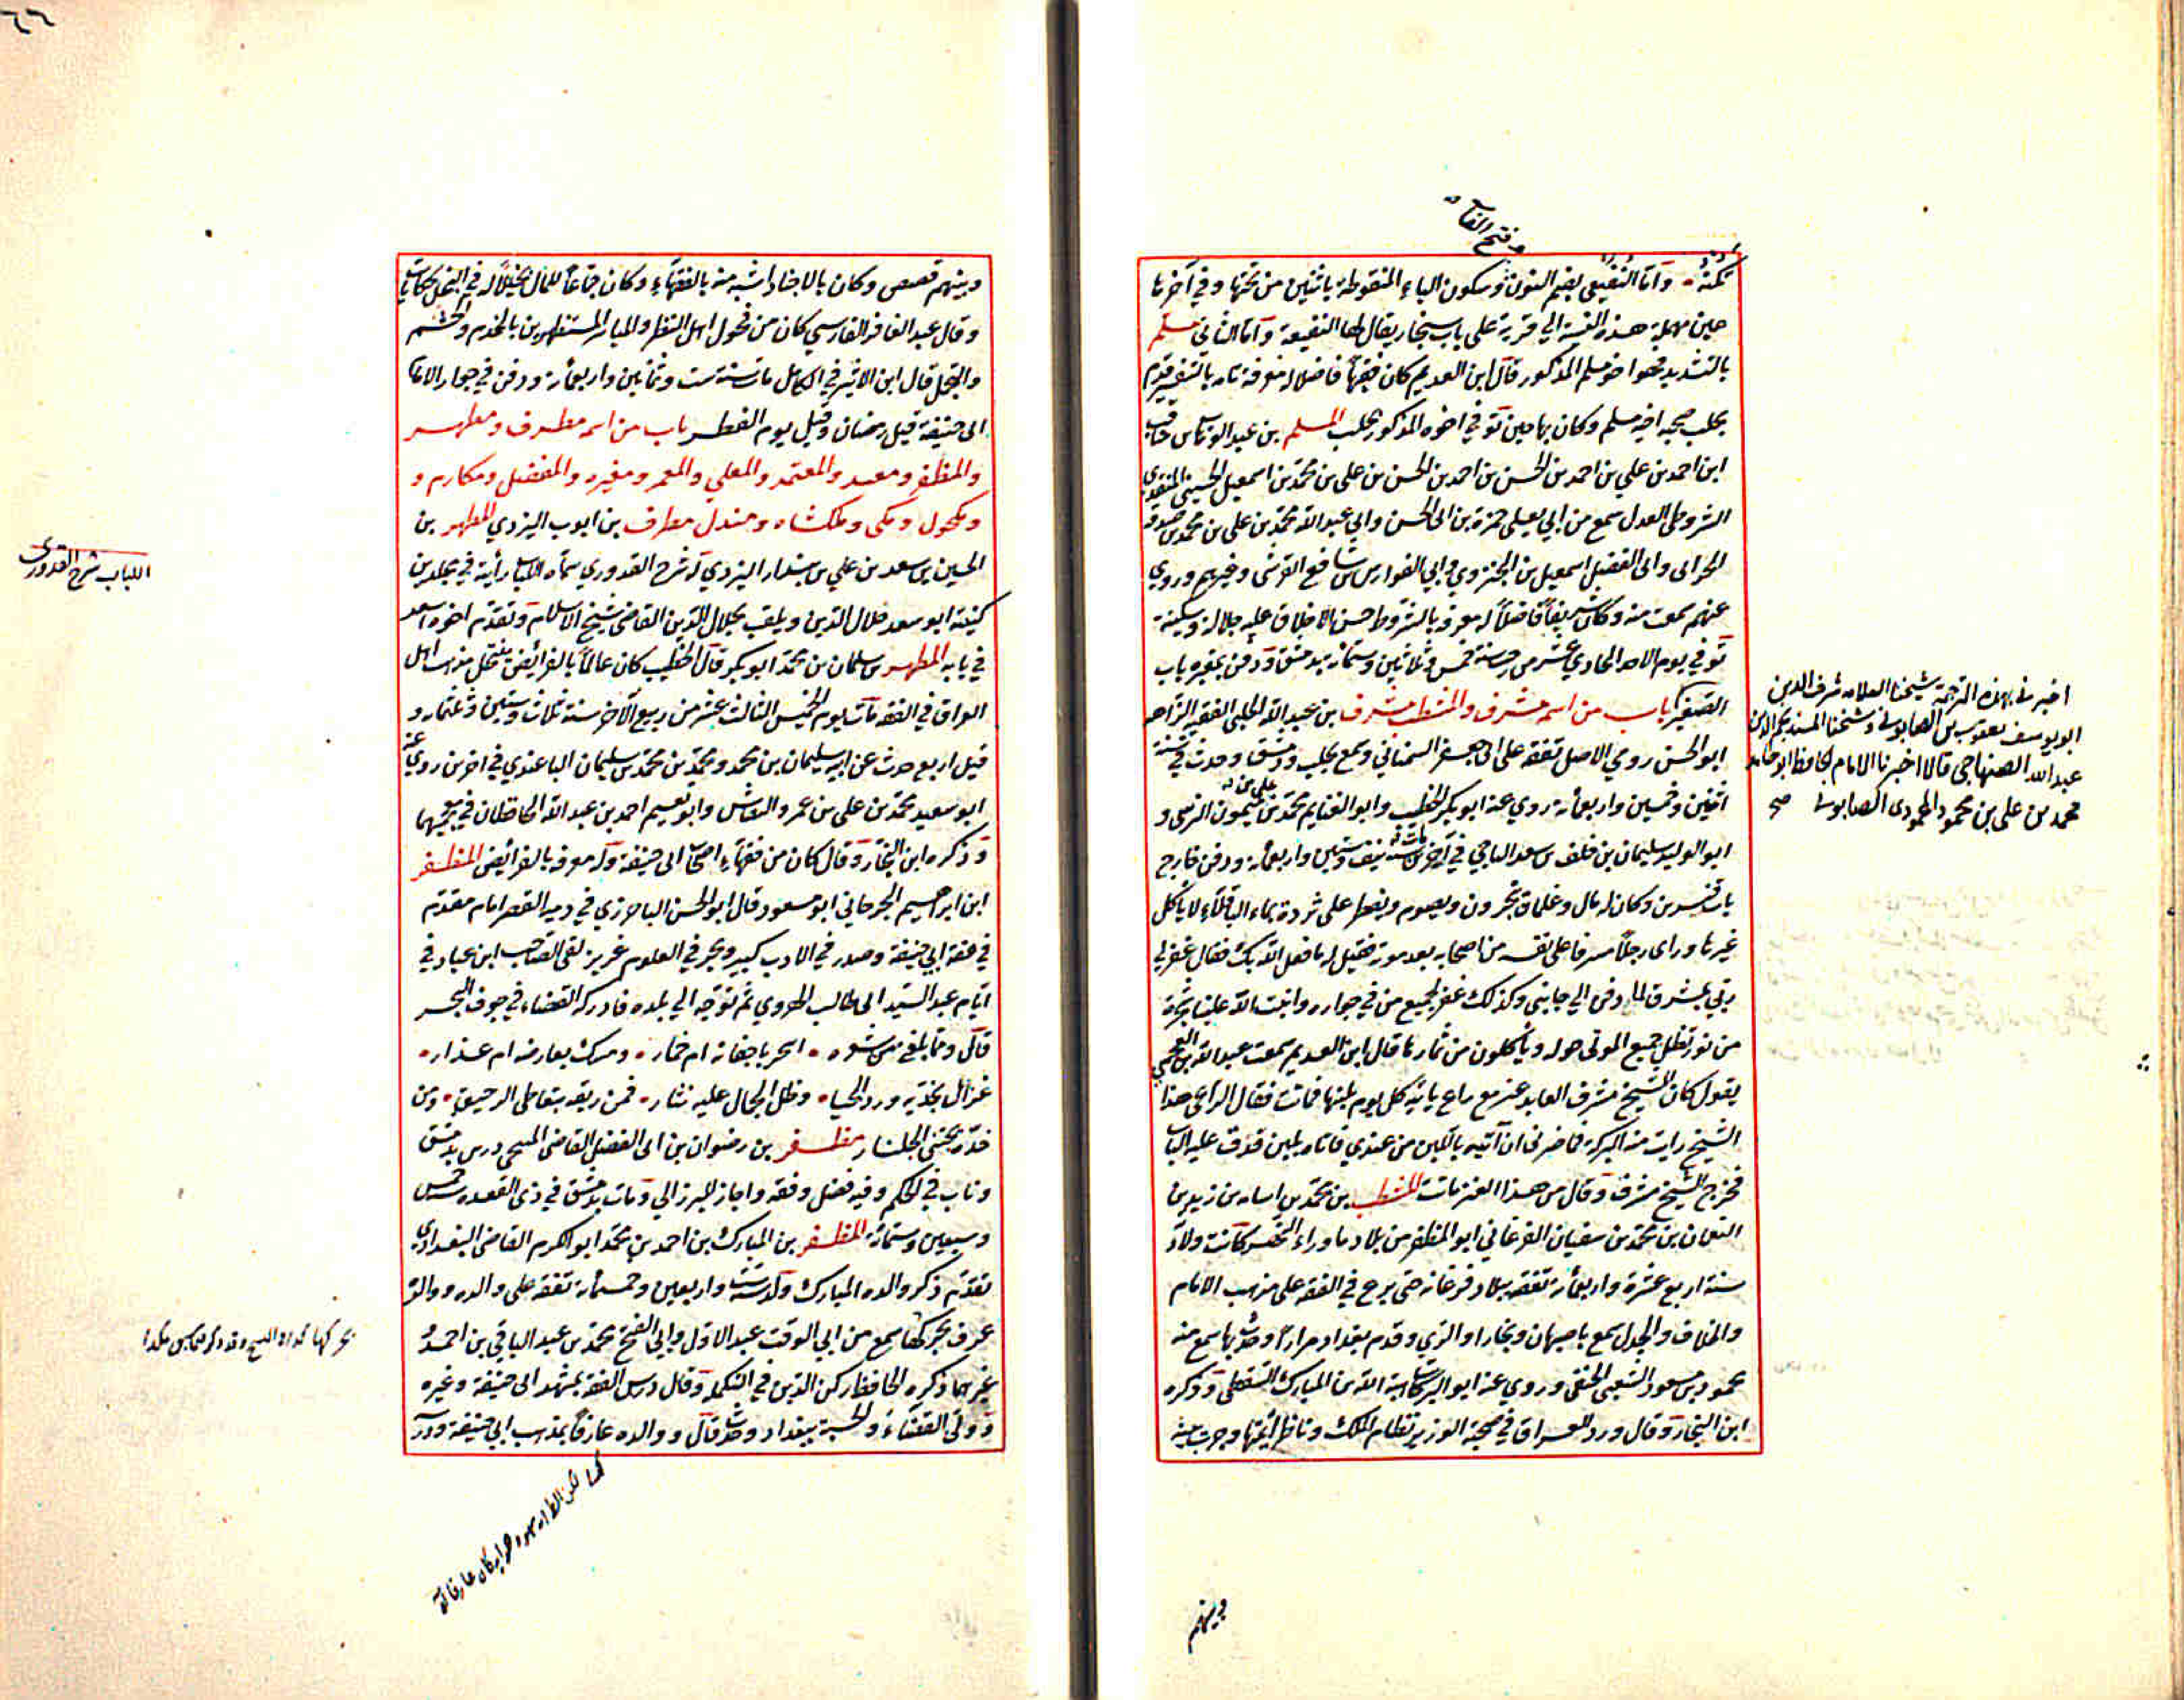 وفتح القاف
تكملة وأما النقيعي بضم النون وسكون الياء المنقوطة باثنين من تحتها وفي آخرها
عين مهملة هذه النسبة الي قرية على باب سنجار يقال لها النقيعة وأما الثاني مسلم
بالتشديد فهو اخو مسلم المذكور قال ابن العديم كان فقيها فاضلا له معرفة تامه بالتفسير قدم
بحلب صحبه اخيه مسلم وكان بها حين توفي اخوه المذكور بحلب المسلم بن عبد الوهاب
ابن احمد بن علي بن احمد بن الحسن بن احمد بن الحسن بن على بن محمد بن اسمعيل الحسيني
الشروطى العدل سمع من ابي يعلى حمزة بن ابى الحسن وابي عبد الله محمد بن على بن محمد بن صدقه
الحرانى وابى الفضل اسمعيل بن الجنزوي وابي الفوارس بن شافع القرشى وغيرهم وروي
عنهم سمعت منه وكان شريفا فاضلا له معرفة بالشروط حسن الاخلاق عليه جلالة وسكينة
توفي يوم الاحد الحادي عشر من سنة خمس وثلاثين وستمائة بدمشق ودفن بمقبره باب
الصغير باب من اسمه مشرف والمشطب مشرف بن عبيد الله الحلبى الفقيه الزاهد
ابو الحسن رومي الاصل تفقه على ابى جعفر السمناني وسمع بحلب ودمشق وحدث في سنة
اثنين وخمسين واربعمائة روي عنه ابو بكر الخطيب وابو الغنايم محمد بن علي بن ميمون النرسى و
ابو الوليد سليمان بن خلف بن سعد الباجي في آخرين مات سنة نيف وستين واربعمائة ودفن خارج
باب قنسرين وكان له مال وغلمان يتجرون ويصوم ويفطر على ثردة بماء الباقلاء لا ياكل
غيرها وراى رجلا مسرفا على نفسه من اصحابه بعد موته فقيل له ما فعل الله بك فقال غفر لي
ربي بمشرق لما دفن الي جانبى وكذلك غفر لجميع من في جواره وانبت الله علينا شجرة
من نور تظلل جميع الموتى حوله وياكلون من ثمارها قال ابن العديم سمعت عبد الله بن العجمي
يقول كان الشيخ مشرف العابد عنز مع راع ياتيه كل يوم بلبنها فماتت فقال الراعي هذا
الشيخ رايت منه البركة فما ضرني ان آتيه باللبن من عندي فاتاه بلبن فدق عليه الباب
فخرج الشيخ مشرف وقال من هذا العنز ماتت المشطب بن محمد بن اسامه بن زيد بن
النعمان بن محمد بن سفيان الفرغاني ابو المظفر من بلاد ما وراء النهر كانت ولادته
سنة اربع عشرة واربعمائة تفقه ببلاد فرغانه حتى برع في الفقه على مذهب الامام
والخلاف والجدل سمع باصبهان وبخارا والري وقدم بغداد مرارا وحدث بها سمع منه
محمود بن مسعود الشعبى الحنفى وروي عنه ابو البركات هبة الله بن المبارك السقطى وذكره
ابن النجار وقال ورد العراق في صحبة الوزير نظام الملك وناظر ائمتها وجرت بينه
اخبرنى بهذه الترجمة شيخنا العلامه شرف الدين
ابو يوسف يعقوب بن الصابونى وشيخنا المسند بدر الدين
عبد الله الصنهاجى قالا اخبرنا الامام الحافظ ابو حامد
محمد بن على بن محمود المحمودى الصابونى صح
وبينهم
٦٦
وبينهم قصص وكان بالاجناد اشبه منه بالفقهاء وكان جماعا للمال بخيلا له في البخل حكايات
وقال عبد الغافر الفارسي كان من فحول اهل النظر والمبارز المستظهرين بالخدم والحشم
والتجمل قال ابن الاثير في الكامل مات سنة ست وثمانين واربعمائة ودفن في جوار الامام
ابى حنيفة قيل رمضان وقيل يوم الفطر باب من اسمه مطرف ومطهر
والمظفر ومعبد والمعتمد والمعلي والمعمر ومغيره والمفضل ومكارم و
ومكحول ومكى وملكشاه ومندل مطرف بن ايوب اليزدي المطهر بن
الحسين بن سعد بن علي بن بندار اليزدي له شرح القدوري سماه اللباب رأيته في مجلدين
كنيته ابو سعد جلال الدين ويلقب بجلال الدين القاضى شيخ الاسلام وتقدم اخوه اسعد
في بابه المطهر بن سلمان بن محمد ابو بكر قال الخطيب كان عالما بالفرائض ينتحل مذهب اهل
العراق في الفقه مات يوم الخميس الثالث عشر من ربيع الآخر سنة ثلاث وستين وثلثمائة و
قيل اربع حدث عن ابيه سليمان بن محمد ومحمد بن محمد بن سليمان الباغندي في اخرين روي عنه
ابو سعيد محمد بن على بن عمرو النقاش وابو نعيم احمد بن عبد الله الحافظان في معجميهما
وذكره ابن النجار وقال كان من فقهاء اصحاب ابى حنيفة وله معرفة بالفرائض المظفر
ابن ابراهيم الجرجاني ابو مسعود قال ابو الحسن الباخرزي في دمية القصر امام مقدم
في فقه ابي حنيفة وصدر في الادب كبير وبحر في العلوم غزير لقى الصاحب ابن عباد في
ايام عبد السيد ابى طالب الهروي ثم توجه الي بلده فادركه القضاء في جوف البحر
قال ومما بلغني من شعره اسحر باجفانه ام خمار ومسك بعارضه ام عذار
غزال بخديه ورد الحياء وظل الجمال عليه نثار فمن ريقه يتعاطى الرحيق ومن
خده يجتنى الجلنار مظفر بن رضوان بن ابى الفضل القاضى المنبجى درس بدمشق
وناب في الحكم وفيه فضل وفقه واجاز للبرزالي ومات بدمشق في ذى القعده سنة خمس
وسبعين وستمائة المظفر بن المبارك بن احمد بن محمد ابو الكرم القاضى البغدادي
تقدم ذكر والده المبارك ولد سنة ست واربعين وخمسمائة تفقه على والده ووالده
عرف بحركها سمع من ابي الوقت عبد الاول وابي الفتح محمد بن عبد الباقي بن احمد و
غيرهما ذكره الحافظ زكى الدين في التكملة وقال درس الفقه بمشهد ابى حنيفة وغيره
وولي القضاء والحسبة ببغداد وحدث قال ووالده عارفا بمذهب ابي حنيفة ودرس
اللباب شرح القدورى